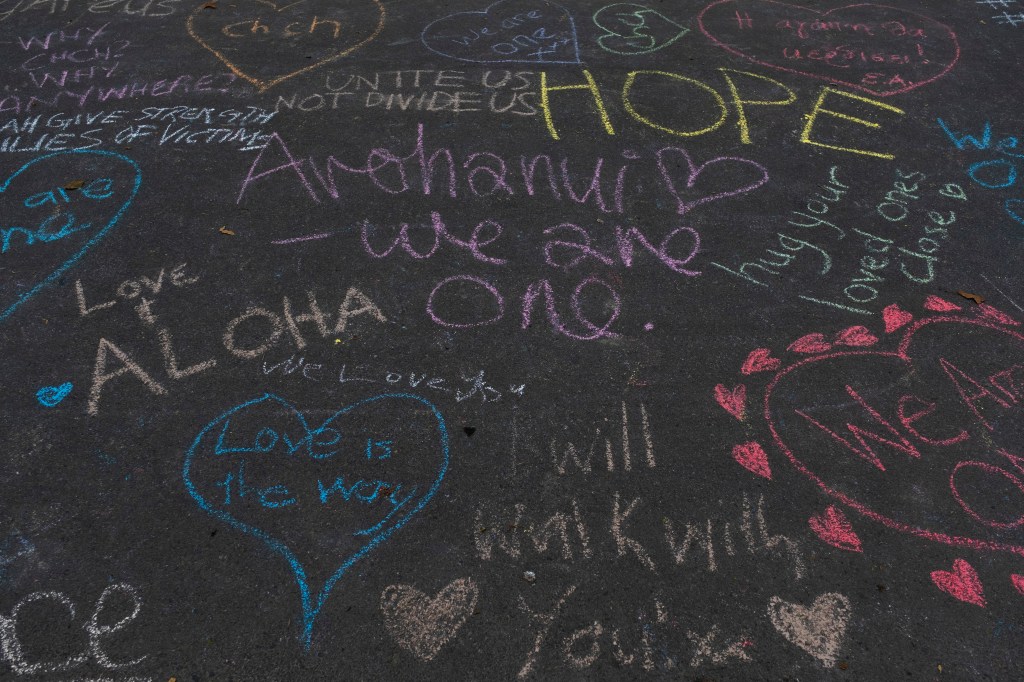 chch
We are
one
WHY
CHCH?
WHY
ANYWHERE?
UNITE US
NOT DIVIDE US
HOPE
AH GIVE STRENGTH
ILIES OF VICTIMS
Arohanui
- we are
one.
are
hug your
loved ones
close
We
O
Love
+
ALOHA
We Love You
Love is
the way
I will
walk with
You
We Are
O
ce
E.A.